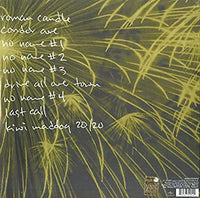 roman candle
condor ave
no name #1
no name #2
no name #3
drive all over town
no name #4
last call
kiwi maddog 20/20